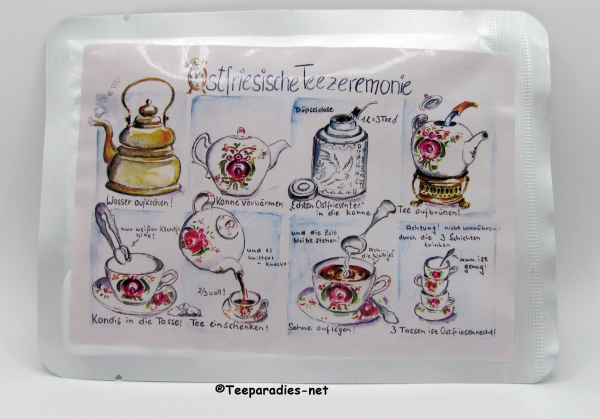 Ostfriesische Teezeremonie
Wasser aufkochen!
Kanne vorwärmen
Düpseldose
1L=3Teel
Echten Ostfriesentee
in die Kanne
Tee aufbrühen!
nur weißen Kluntje
Kandis in die Tasse!
2/3 voll!
und es
knistert
+ knackt
Tee einschenken!
und die Zeit
bleibt stehen!
Ach..
die Wulkje
Sahne auflegen!
Achtung! nicht umrühren!
durch die 3 Schichten
trinken
nun ist
genug!
3 Tassen ist Ostfriesenrecht!
©Teeparadies-net